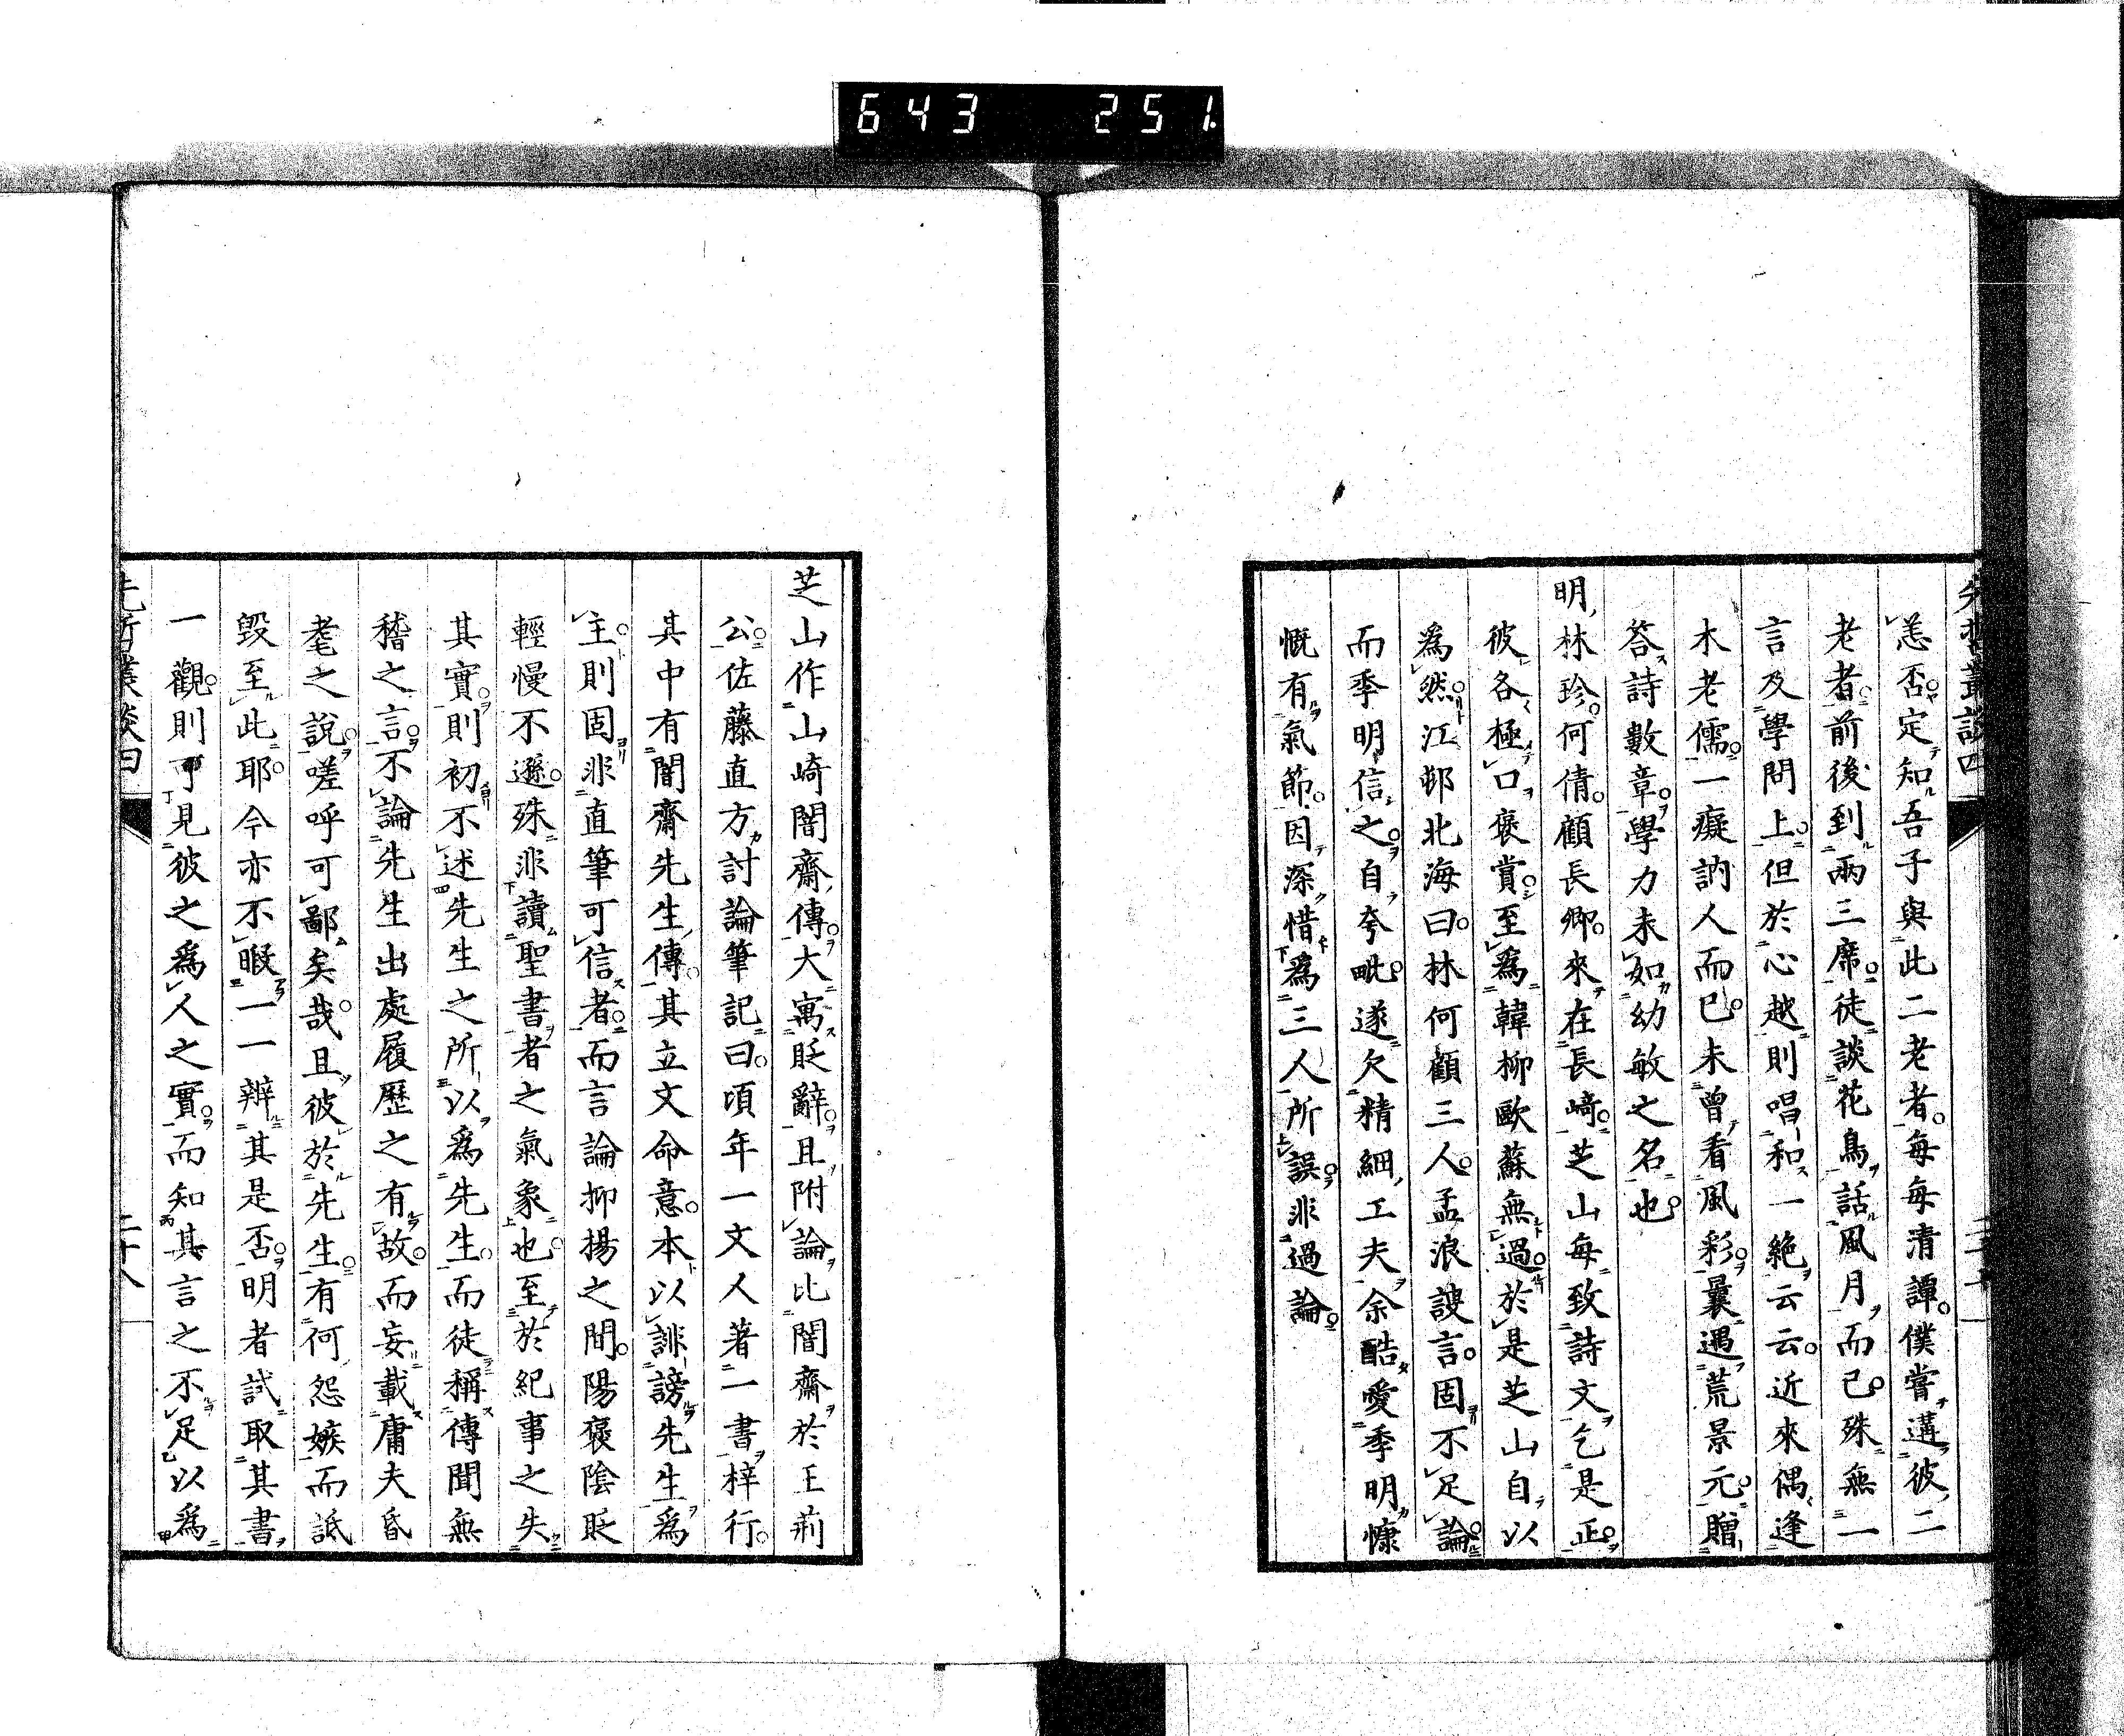 643 251.
先哲叢談四
恙否定知吾子與此二老者每每清譚僕嘗遘彼二
老者前後到兩三席徒談花鳥話風月而已殊無一
言及學問上但於心越則唱和一絶云云近來偶逢
木老儒一癡訥人而已未曾看風彩曩遇荒景元贈
答詩數章學力未如幼敏之名也
明林珍何倩顧長卿來在長崎芝山每致詩文乞是正
彼各極口褒賞至爲韓柳歐蘇無過於是芝山自以
爲然江邨北海曰林何顧三人孟浪諛言固不足論
而季明信之自夸毗遂欠精細工夫余酷愛季明慷
慨有氣節因深惜爲三人所誤非過論
芝山作山崎闇齋傳大寓貶辭且附論比闇齋於王荊
公佐藤直方討論筆記曰頃年一文人著一書梓行
其中有闇齋先生傳其立文命意本以誹謗先生爲
主則固非直筆可信者而言論抑揚之間陽褒陰貶
輕慢不遜殊非讀聖書者之氣象也至於紀事之失
其實則初不述先生之所以爲先生而徒稱傳聞無
稽之言不論先生出處履歷之有故而妄載庸夫昏
耄之說嗟呼可鄙矣哉且彼於先生有何怨嫉而詆
毀至此耶今亦不暇一一辨其是否明者試取其書
一觀則可見彼之爲人之實而知其言之不足以爲
先哲叢談四 二十八